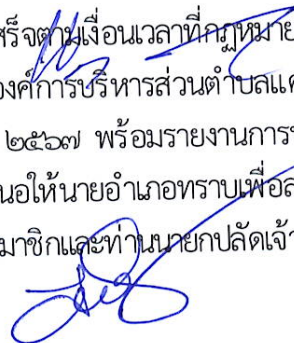 สร็จตามเงื่อนเวลาที่กฎหมาย
องค์การบริหารส่วนตำบลแค
๒๕๖๗ พร้อมรายงานการ
นอให้นายอำเภอทราบเพื่อล
มาชิกและท่านนายกปลัดเจ้า